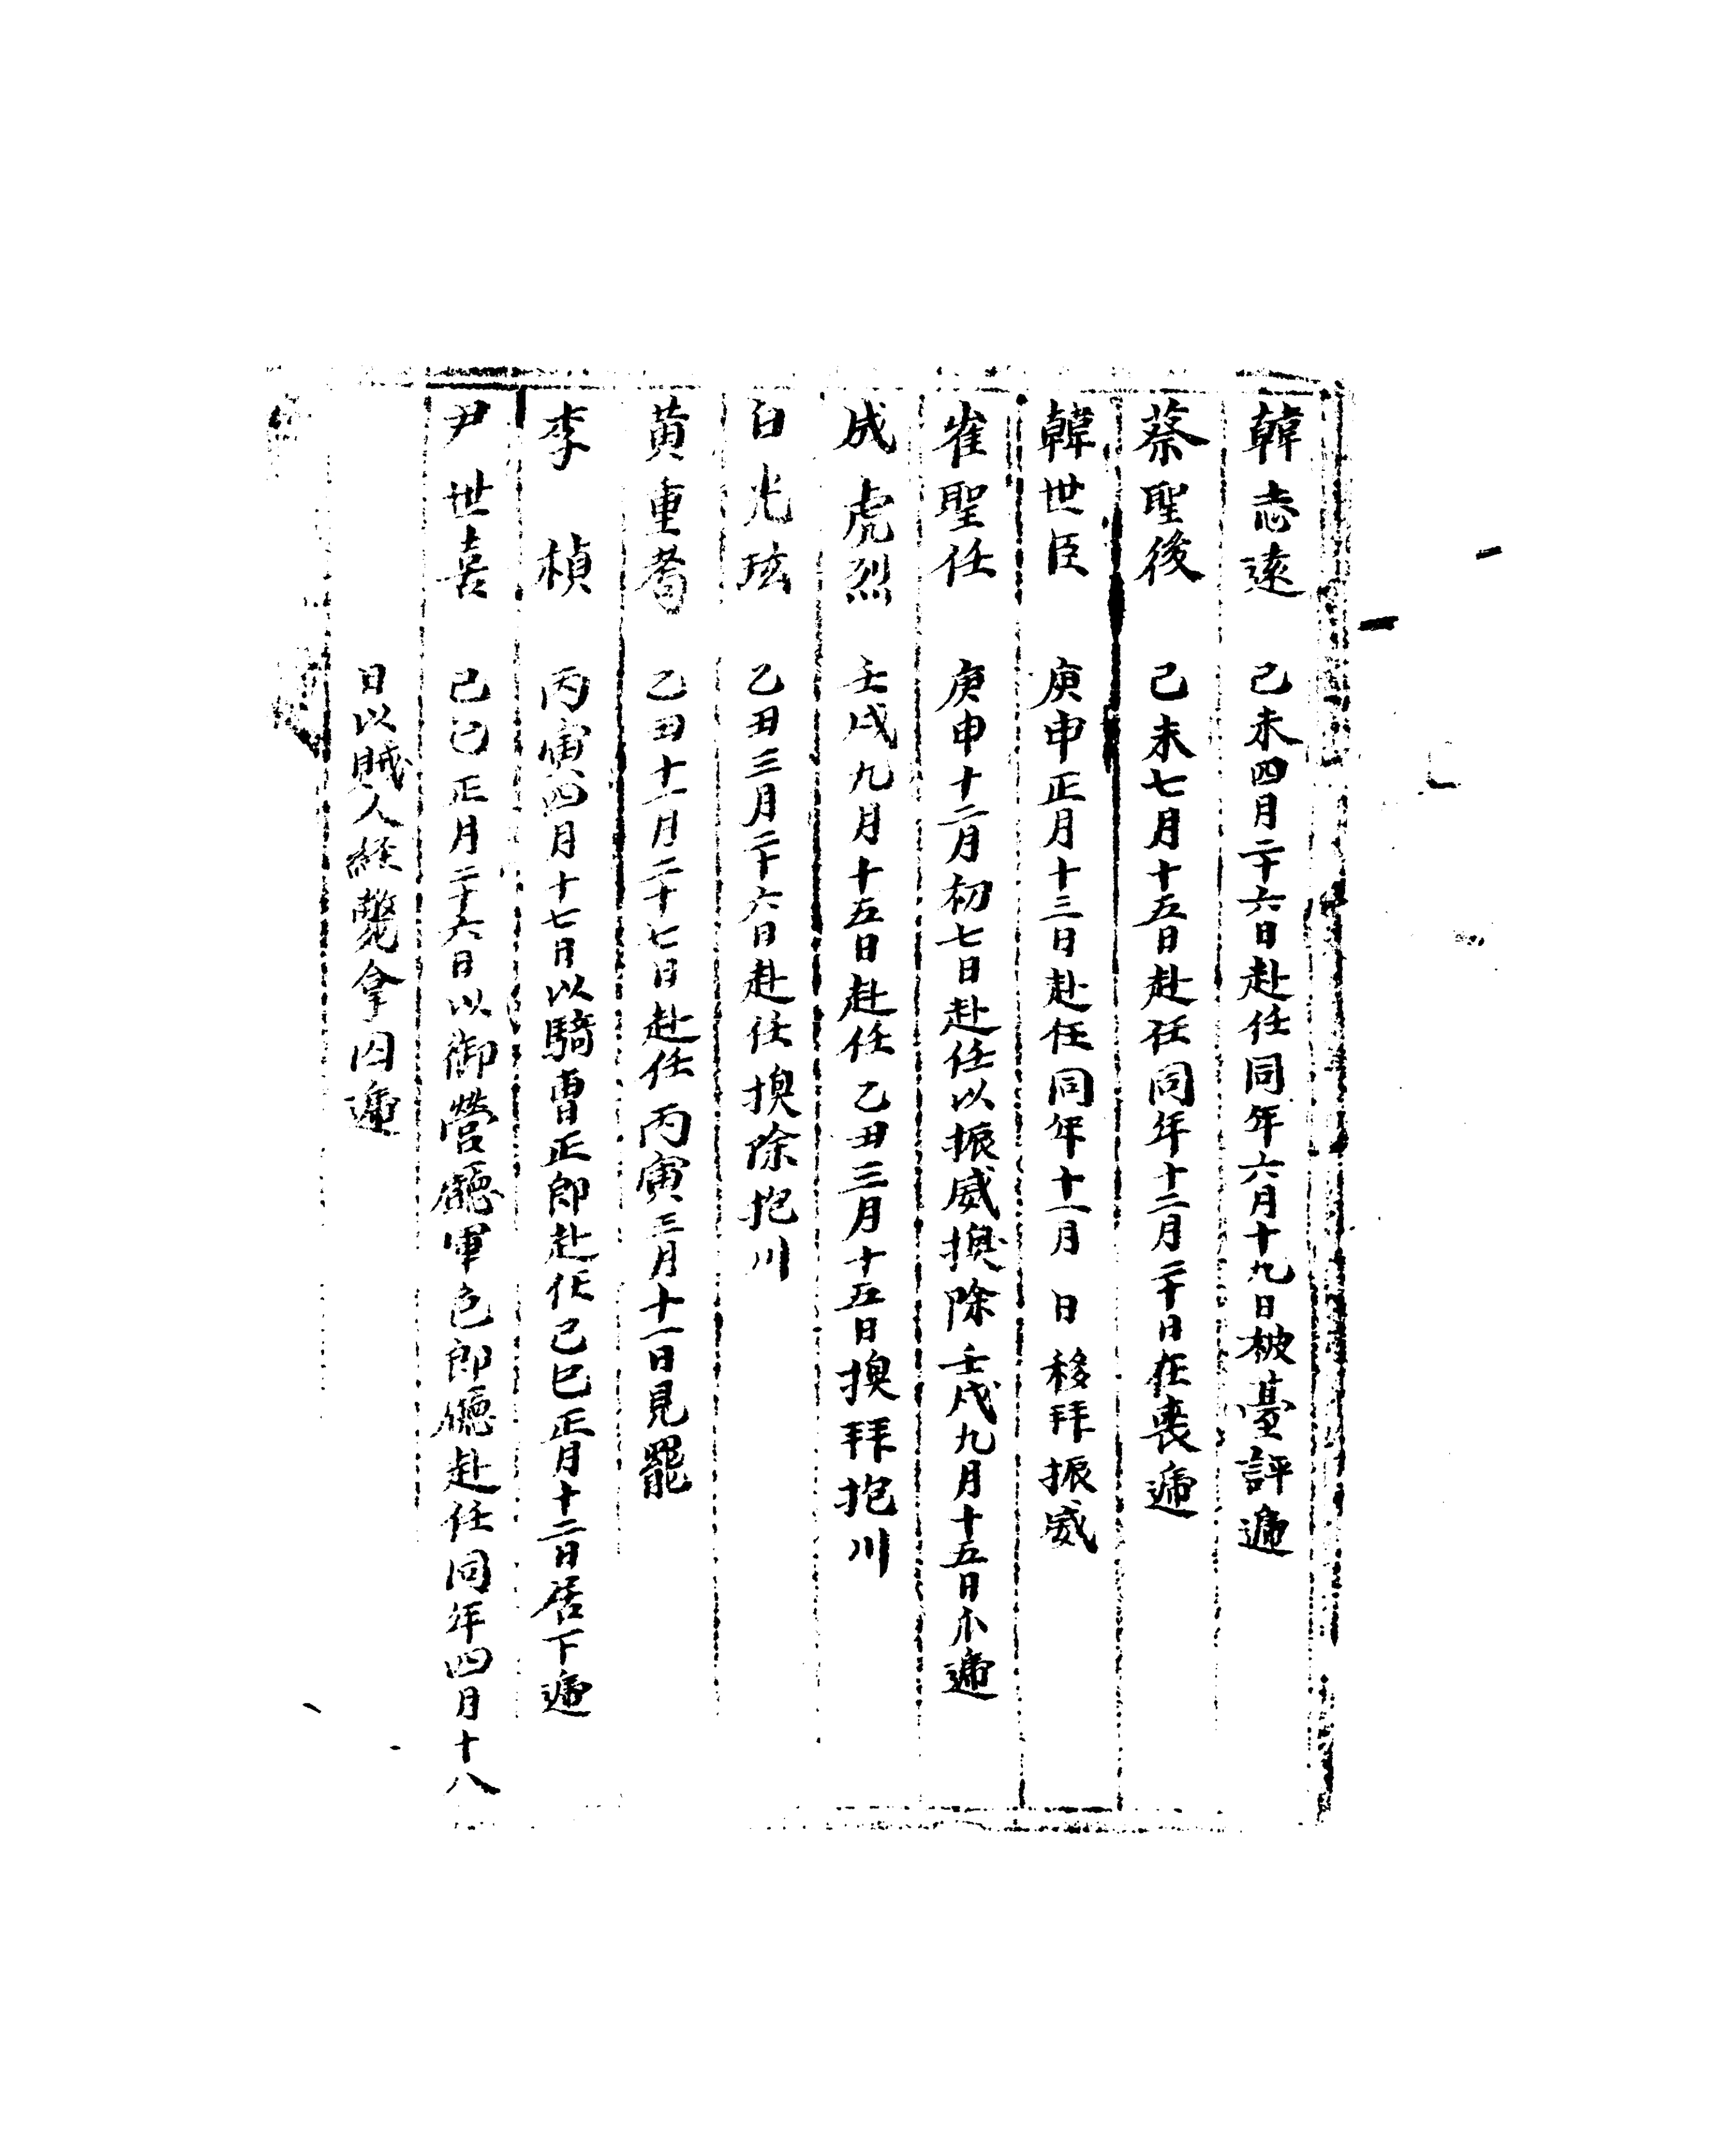 韓志遠 己未四月二十六日赴任同年六月十九日被臺評遞
蔡聖後 己未七月十五日赴任同年十二月二十日在喪遞
韓世臣 庚申正月十三日赴任同年十一月 日移拜振威
崔聖任 庚申十二月初七日赴任以振威換除壬戌九月十五日不遞
成虎烈 壬戌九月十五日赴任乙丑三月十五日換拜抱川
白光玹 乙丑三月二十六日赴任換除抱川
黃重耉 乙丑十一月二十七日赴任丙寅三月十一日見罷
李楨 丙寅四月十七日以騎曹正郎赴任己巳正月十二日居下遞
尹世喜 己巳正月二十六日以御營廳軍色郎廳赴任同年四月十八
日以賊人経斃拿囚遞